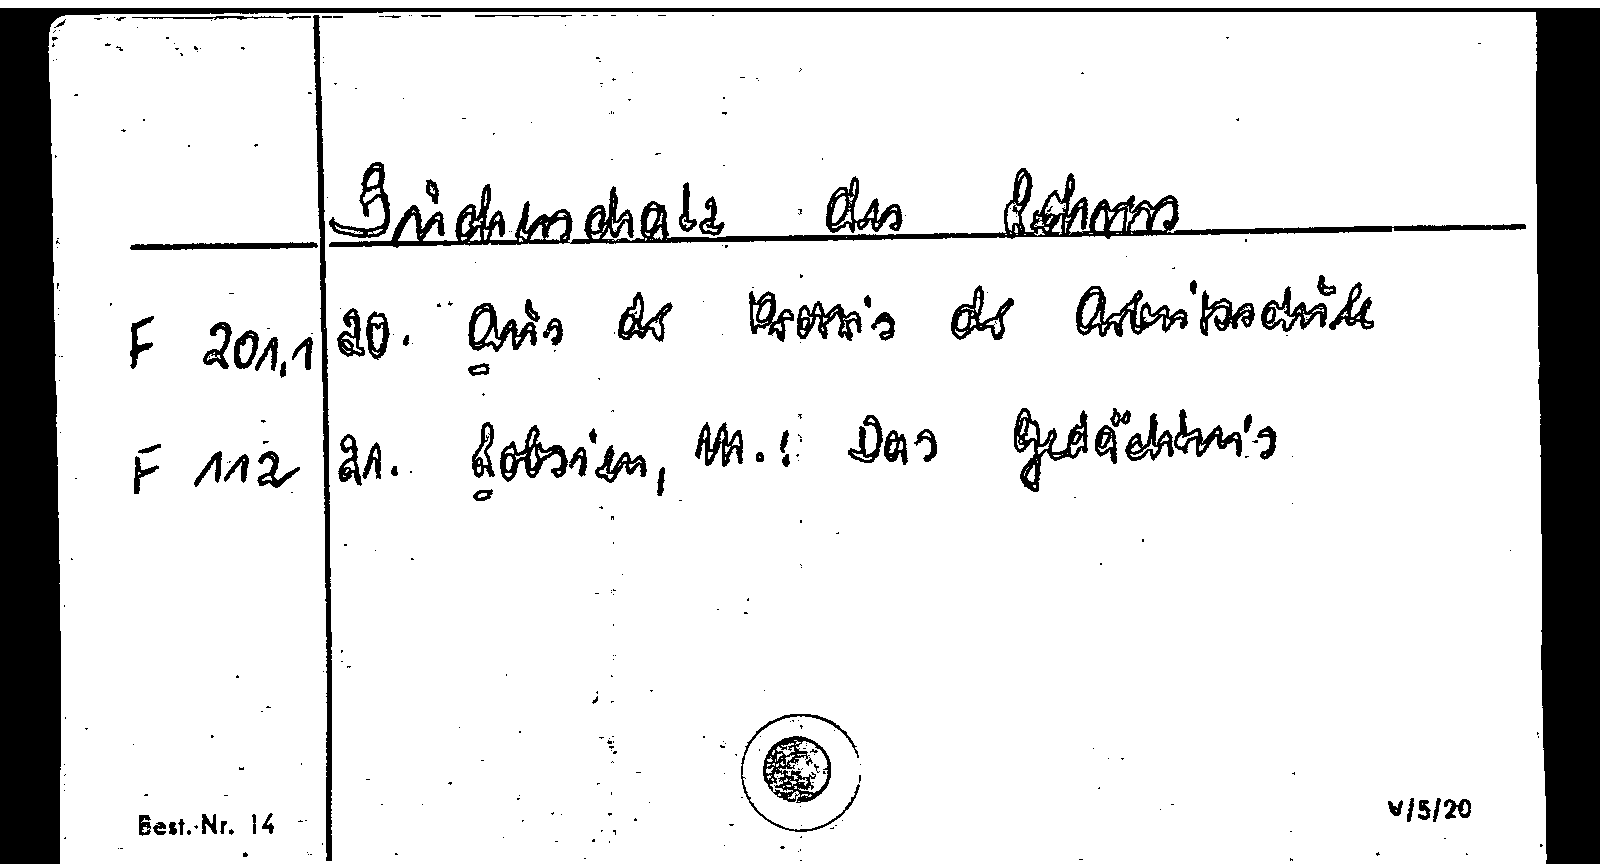 Bücherschatz des Lehrers
F 201,1 20. Aus der Praxis der Arbeitsschule
F 112 21. Lobsien, M.: Das Gedächtnis
Best.-Nr. 14
V/5/20